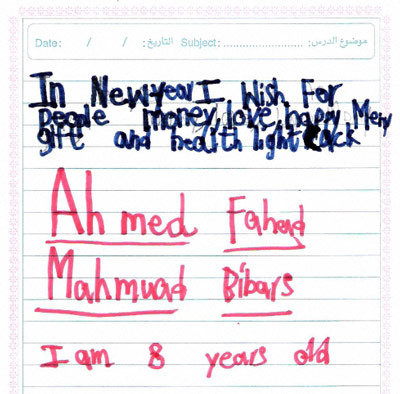 Date: / / التاريخ: Subject: ........................ موضوع الدرس:
In Newyear I Wish For
people money, love, happy, Mery
gift and health light
Ahmed Fahed
Mahmuad Bibars
I am 8 years old